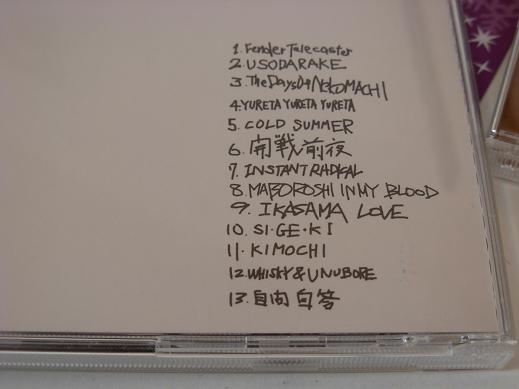 1. Fender Telecaster
2. USODARAKE
3. The Days Of NEKOMACHI
4. YURETA YURETA YURETA
5. COLD SUMMER
6. 開戦前夜
7. INSTANT RADICAL
8. MABOROSHI IN MY BLOOD
9. IKASAMA LOVE
10. SI・GE・KI
11. KIMOCHI
12. WHISKY & UNUBORE
13. 自問自答